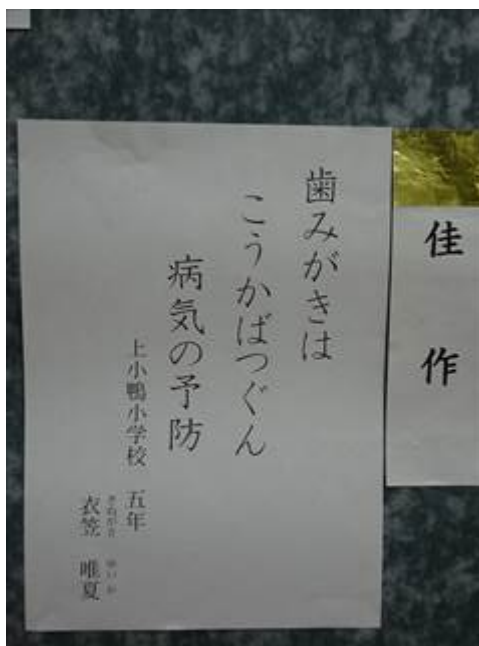 佳作
歯みがきは
こうかばつぐん
病気の予防
上小鴨小学校 五年
衣笠 唯夏